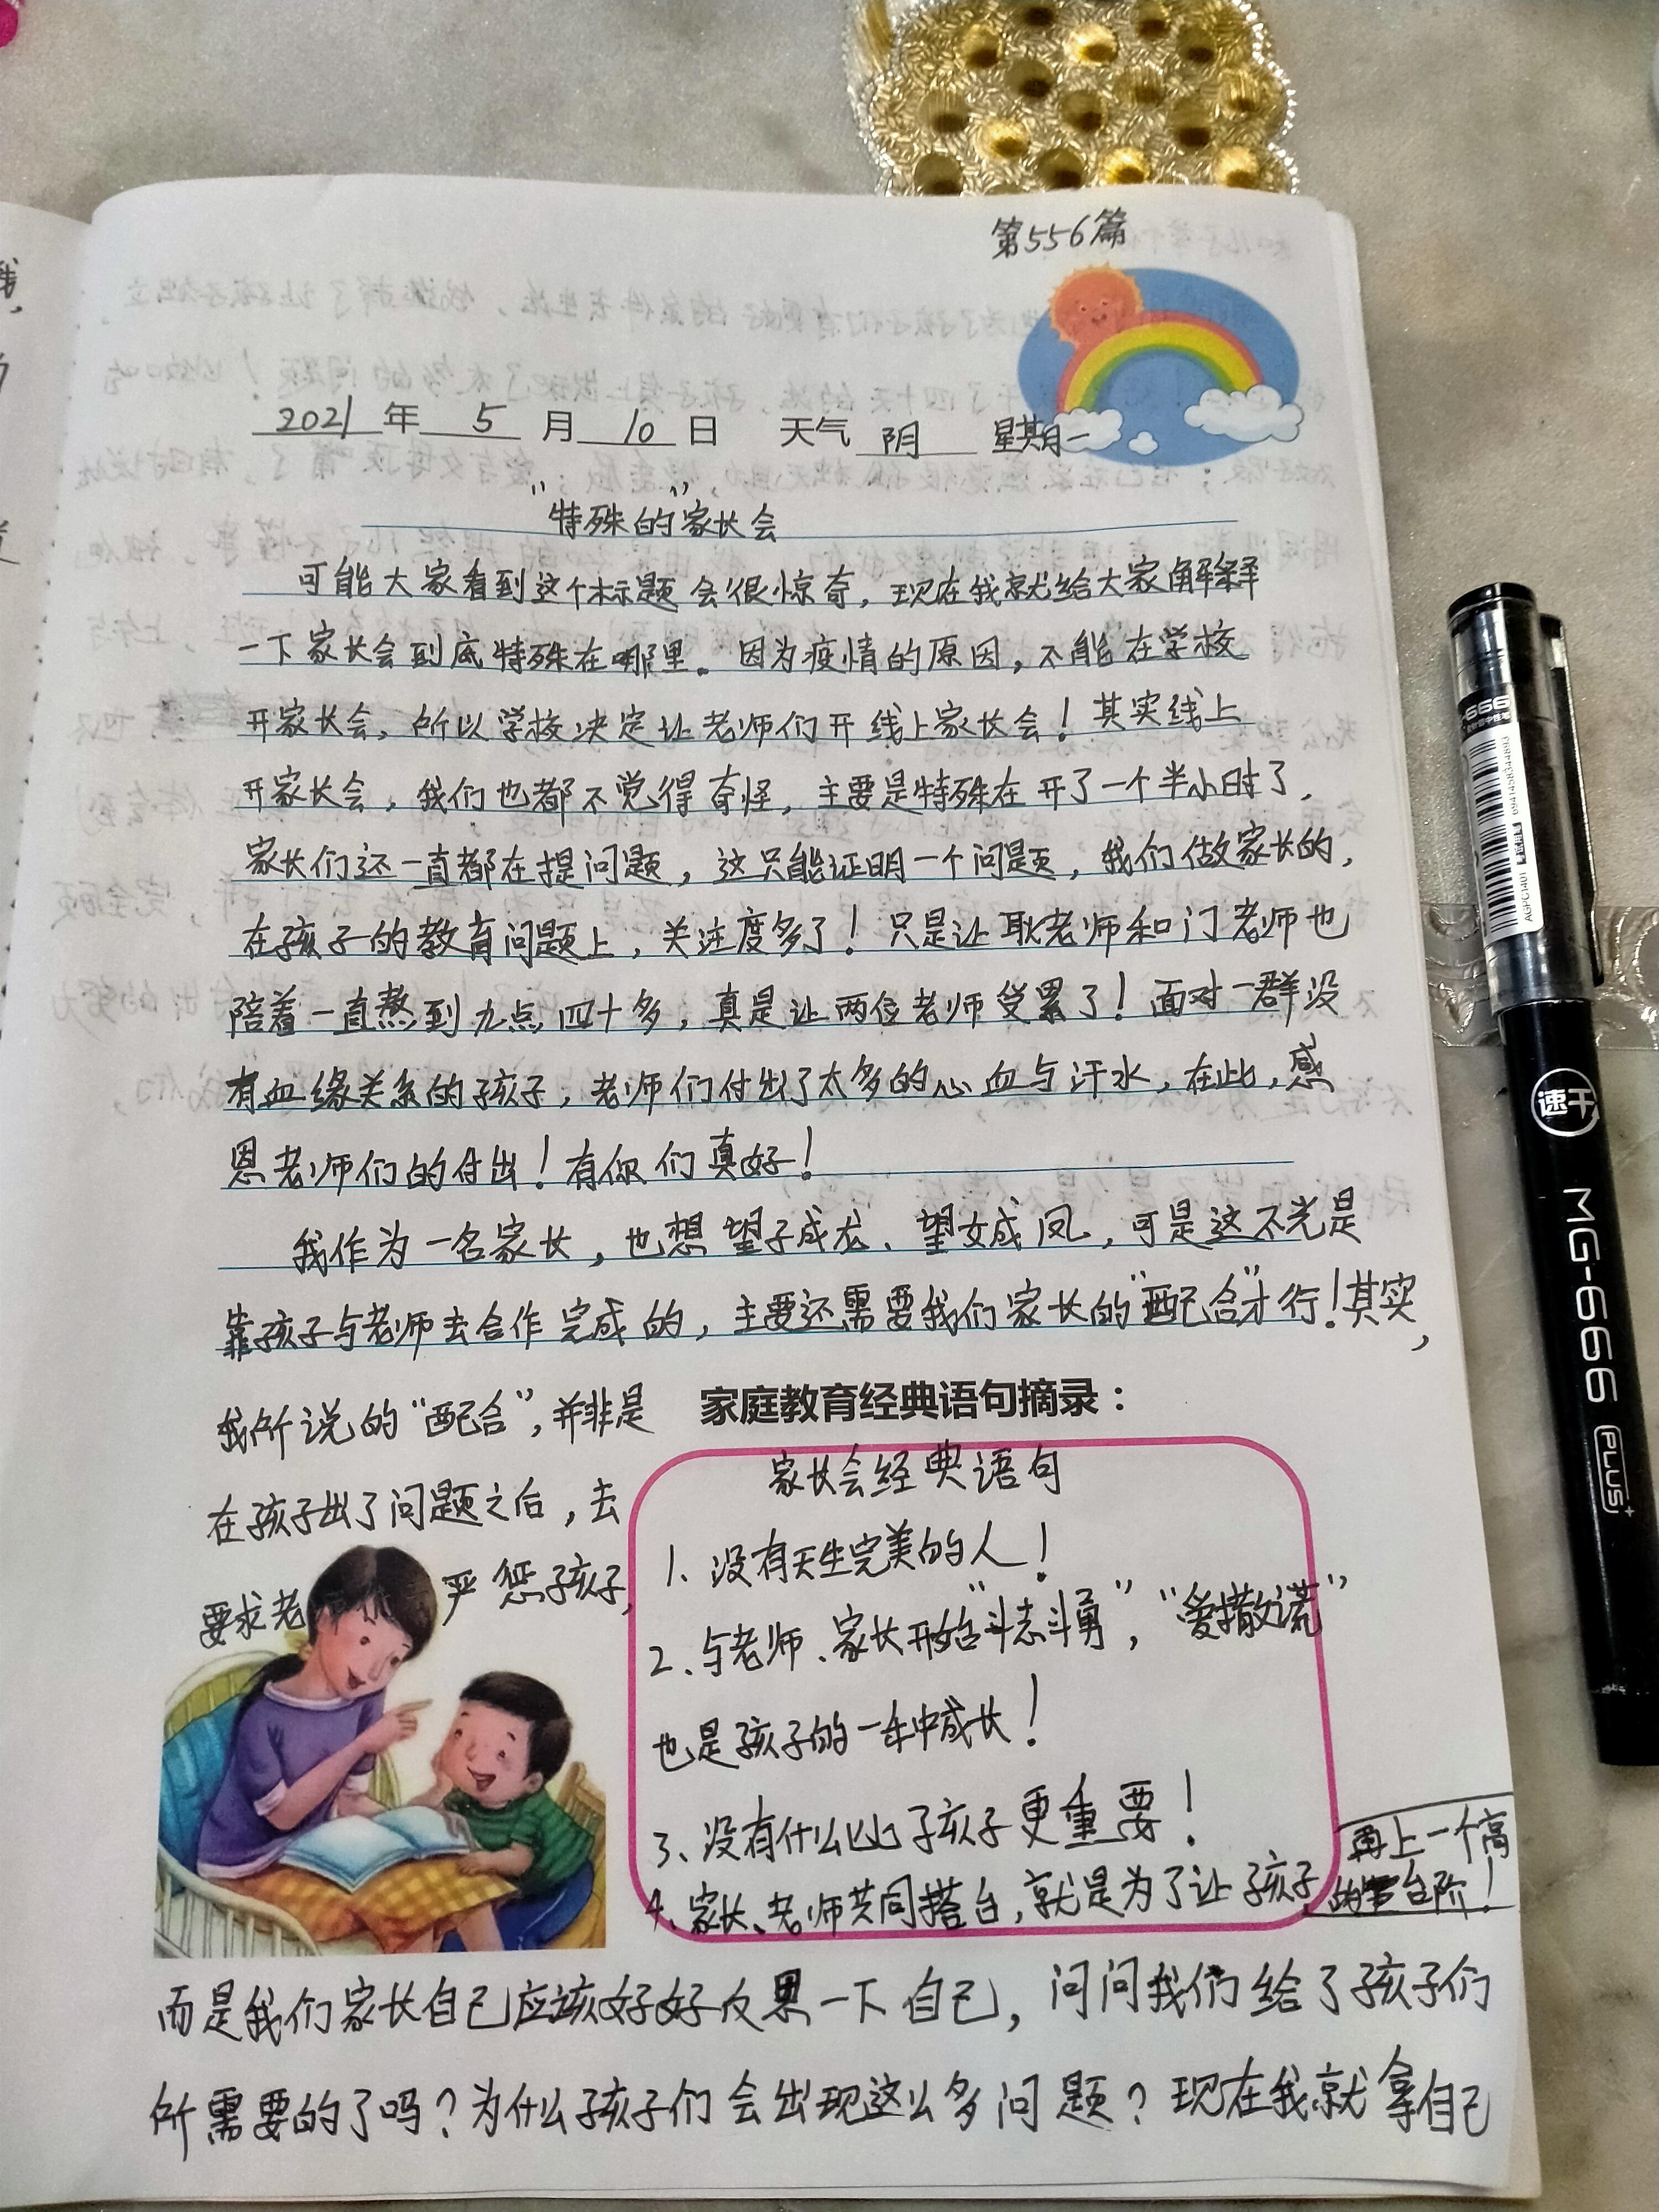 第556篇
2021年5月10日 天气 阴 星期一
"特殊的"家长会
可能大家看到这个标题会很惊奇，现在我就给大家解释
一下家长会到底特殊在哪里。因为疫情的原因，不能在学校
开家长会，所以学校决定让老师们开线上家长会！其实线上
开家长会，我们也都不觉得奇怪，主要是特殊在开了一个半小时了，
家长们还一直都在提问题，这只能证明一个问题，我们做家长的，
在孩子的教育问题上，关注度多了！只是让耿老师和门老师也
陪着一直熬到九点四十多，真是让两位老师受累了！面对一群没
有血缘关系的孩子，老师们付出了太多的心血与汗水，在此，感
恩老师们的付出！有你们真好！
我作为一名家长，也想望子成龙、望女成凤，可是这不光是
靠孩子与老师去合作完成的，主要还需要我们家长的"配合"才行！其实，
我所说的"配合"，并非是
在孩子出了问题之后，去
要求老 严惩孩子，
家庭教育经典语句摘录：
家长会经典语句
1、没有天生完美的人！
2、与老师、家长开始"斗志斗勇"，"爱撒谎"
也是孩子的一种成长！
3、没有什么比孩子更重要！
4、家长、老师共同搭台，就是为了让孩子再上一个高
的台阶！
而是我们家长自己应该好好反思一下自己，问问我们给了孩子们
所需要的了吗？为什么孩子们会出现这么多问题？现在我就拿自己
我
速干
MG-666
PLUS+
AGPC1401
6941458344893